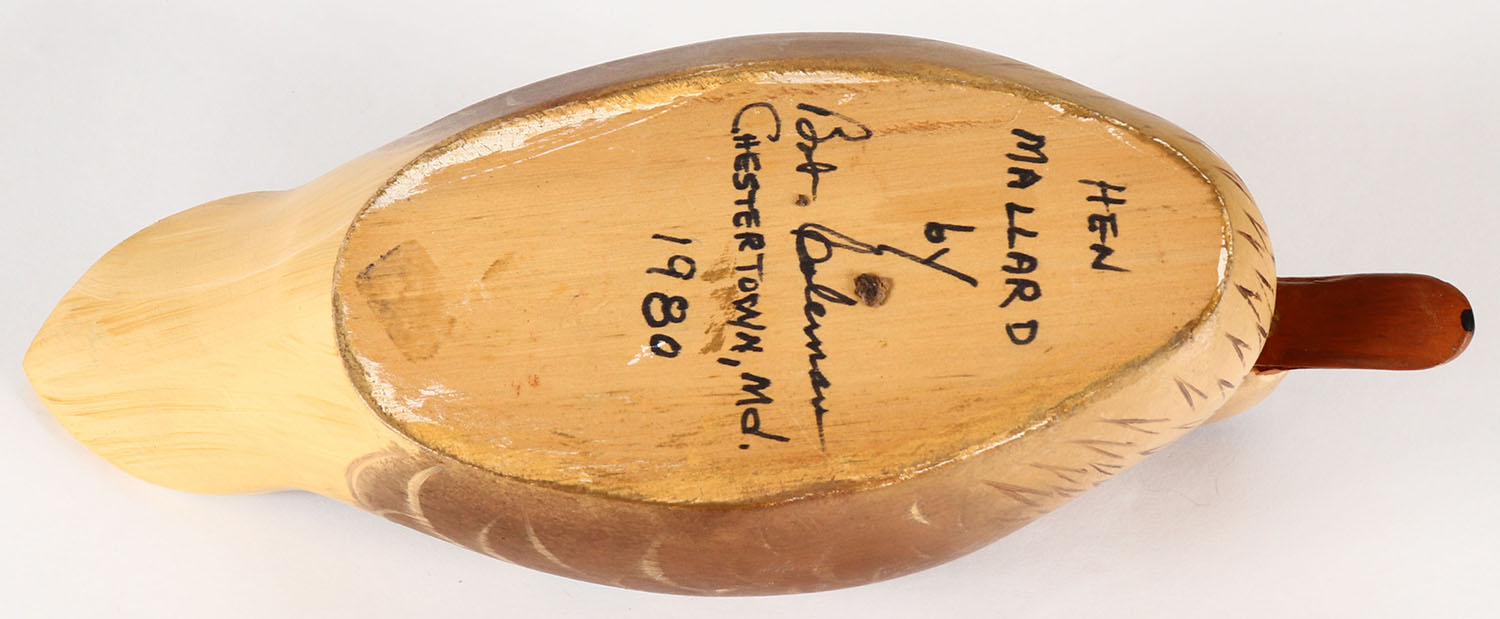 HEN
MALLARD
by
Bob Coleman
CHESTERTOWN, Md.
1980